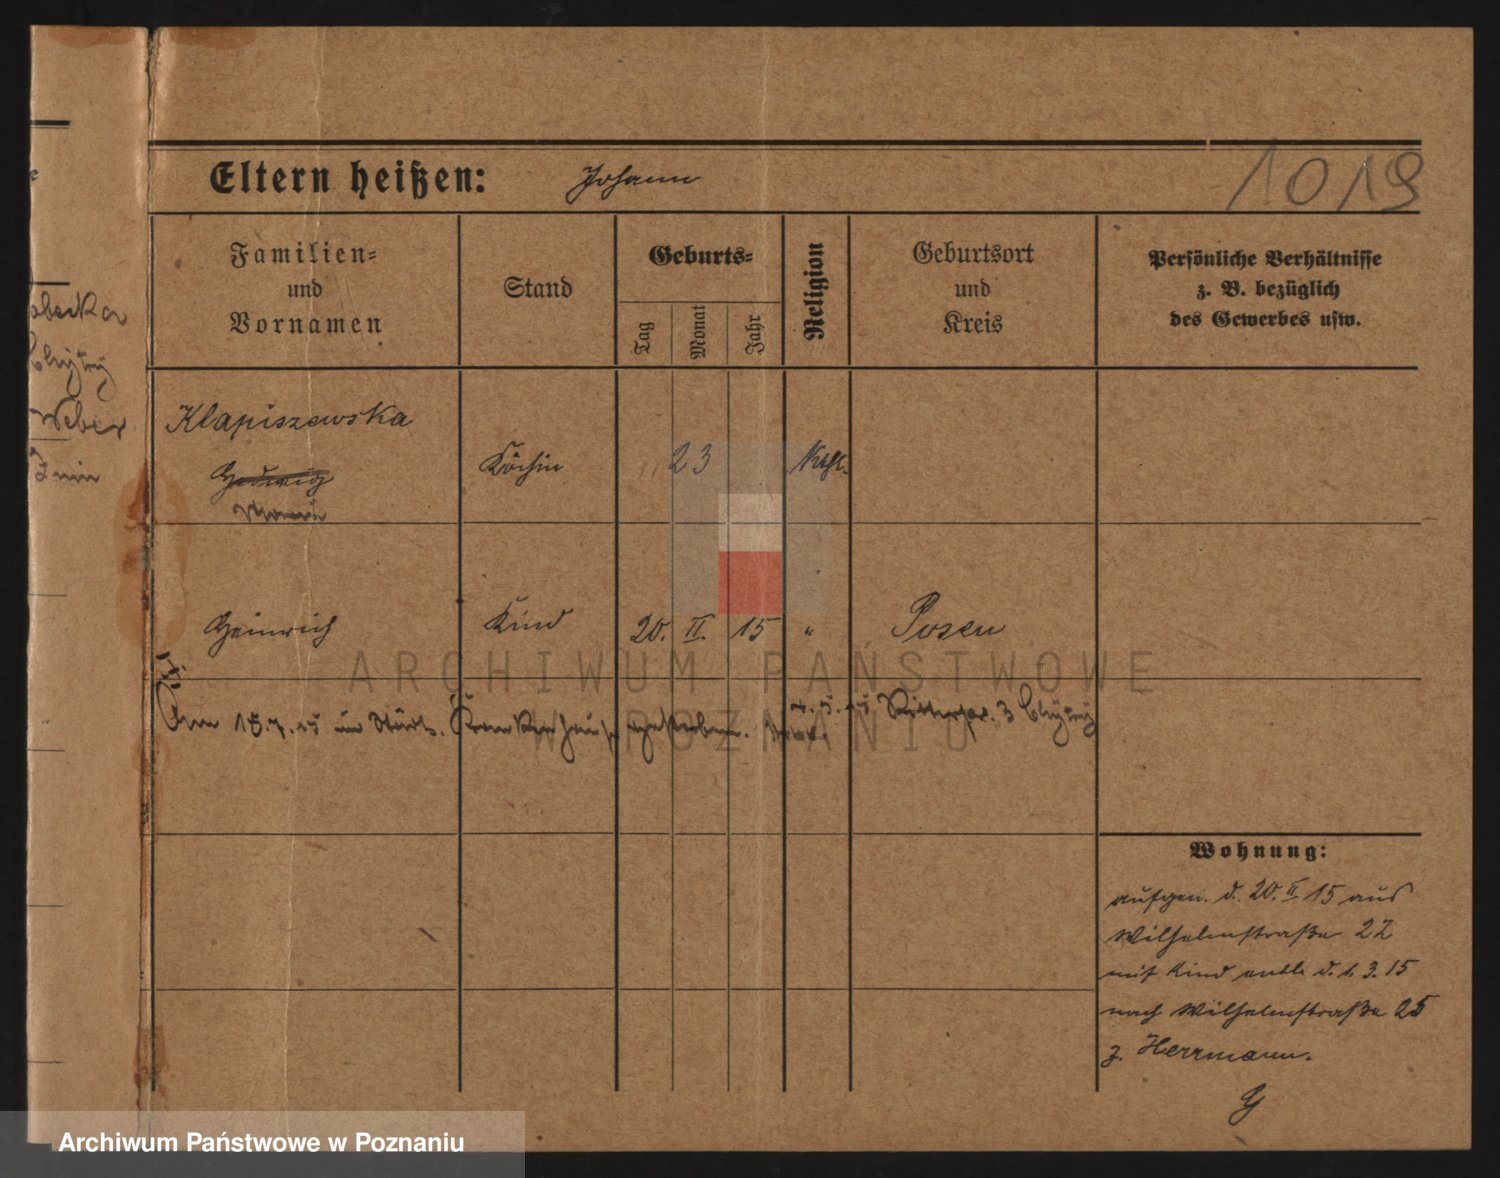 Eltern heißen: Johann
1019
Familien=
und
Vornamen
Stand
Geburts=
Tag
Monat
Jahr
Religion
Geburtsort
und
Kreis
Persönliche Verhältnisse
z. B. bezüglich
des Gewerbes usw.
Weber
Znin
Klapiszewska
Hedwig
Köchin
23
Kath.
Heinrich
Kind
20. II. 15
"
Posen
Am 18.7.15 im Städt. Krankenhause gestorben.
Ritterstr. 3
Wohnung:
aufgen. d. 20. II. 15 aus
Wilhelmstraße 22
mit Kind entl. d. 1. 3. 15
nach Wilhelmstraße 25
z. Herrmann.
ARCHIWUM PAŃSTWOWE
W POZNANIU
Archiwum Państwowe w Poznaniu